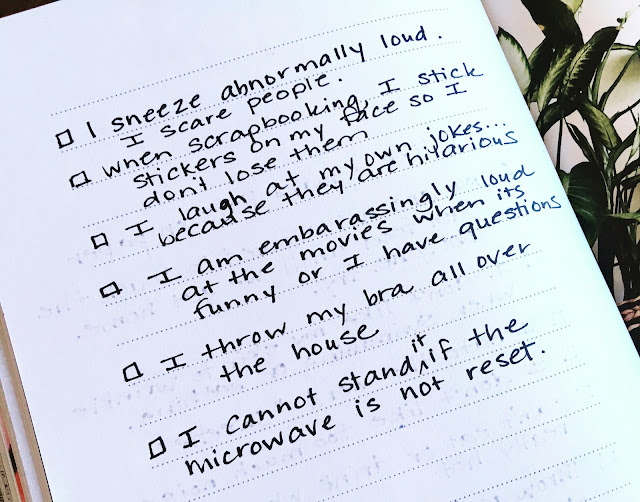 I sneeze abnormally loud.
I scare people.
When scrapbooking, I stick
stickers on my face so I
don't lose them
I laugh at my own jokes...
because they are hilarious
I am embarassingly loud
at the movies when its
funny or I have questions
I throw my bra all over
the house
I cannot stand it if the
microwave is not reset.